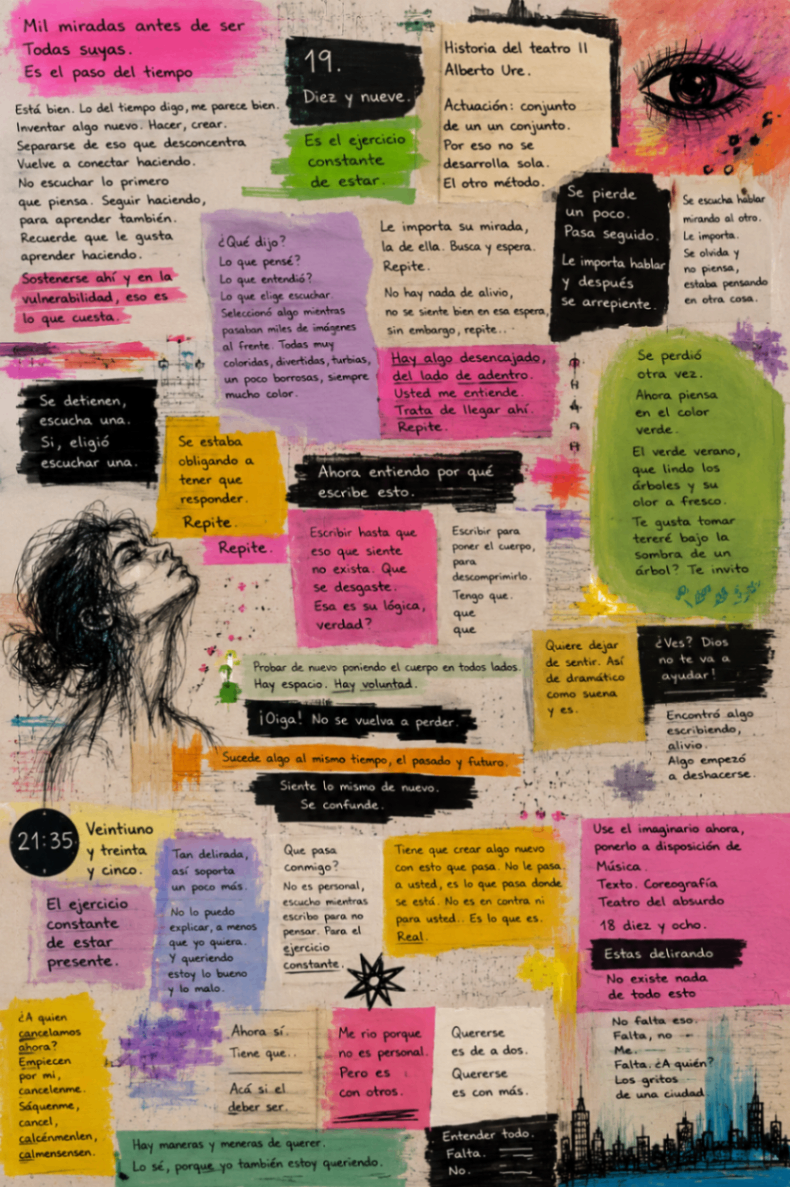 Mil miradas antes de ser
Todas suyas.
Es el paso del tiempo
19.
Diez y nueve.
Es el ejercicio
constante
de estar.
Historia del teatro II
Alberto Ure.
Actuación: conjunto
de un un conjunto.
Por eso no se
desarrolla sola.
El otro método.
Está bien. Lo del tiempo digo, me parece bien.
Inventar algo nuevo. Hacer, crear.
Separarse de eso que desconcentra
Vuelve a conectar haciendo.
No escuchar lo primero
que piensa. Seguir haciendo,
para aprender también.
Recuerde que le gusta
aprender haciendo.
Sostenerse ahí y en la
vulnerabilidad, eso es
lo que cuesta.
¿Qué dijo?
Lo que pensé?
Lo que entendió?
Lo que elige escuchar.
Seleccionó algo mientras
pasaban miles de imágenes
al frente. Todas muy
coloridas, divertidas, turbias,
un poco borrosas, siempre
mucho color.
Le importa su mirada,
la de ella. Busca y espera.
Repite.
No hay nada de alivio,
no se siente bien en esa espera,
sin embargo, repite..
Se pierde
un poco.
Pasa seguido.
Le importa hablar
y después
se arrepiente.
Se escucha hablar
mirando al otro.
Le importa.
Se olvida y
no piensa,
estaba pensando
en otra cosa.
Hay algo desencajado,
del lado de adentro.
Usted me entiende
Trata de llegar ahí.
Repite.
Se perdió
otra vez.
Ahora piensa
en el color
verde.
El verde verano,
que lindo los
árboles y su
olor a fresco.
Te gusta tomar
tereré bajo la
sombra de un
árbol? Te invito
Se detienen,
escucha una.
Si, eligió
escuchar una.
Se estaba
obligando a
tener que
responder.
Repite.
Repite.
Ahora entiendo por qué
escribe esto.
Escribir hasta que
eso que siente
no exista. Que
se desgaste.
Esa es su lógica,
verdad?
Escribir para
poner el cuerpo,
para
descomprimirlo.
Tengo que.
que
que
Probar de nuevo poniendo el cuerpo en todos lados.
Hay espacio. Hay voluntad.
Quiere dejar
de sentir. Así
de dramático
como suena
y es.
¿Ves? Dios
no te va a
ayudar!
¡Oiga! No se vuelva a perder.
Encontró algo
escribiendo,
alivio.
Algo empezó
a deshacerse.
Sucede algo al mismo tiempo, el pasado y futuro.
Siente lo mismo de nuevo.
Se confunde.
21:35
Veintiuno
y treinta
y cinco.
El ejercicio
constante
de estar
presente.
Tan delirada,
así soporta
un poco más.
No lo puedo
explicar, a menos
que yo quiera.
Y queriendo
estoy lo bueno
y lo malo.
Que pasa
conmigo?
No es personal,
escucho mientras
escribo para no
pensar. Para el
ejercicio
constante.
Tiene que crear algo nuevo
con esto que pasa. No le pasa
a usted, es lo que pasa donde
se está. No es en contra ni
para usted.. Es lo que es.
Real.
Use el imaginario ahora,
ponerlo a disposición de
Música.
Texto. Coreografía
Teatro del absurdo
18 diez y ocho.
Estas delirando
No existe nada
de todo esto
¿A quien
cancelamos
ahora?
Empiecen
por mi,
cancelenme.
Sáquenme,
cancel,
calcénmenlen,
calmensensen.
Ahora sí.
Tiene que..
Acá si el
deber ser.
Me rio porque
no es personal.
Pero es
con otros.
Quererse
es de a dos.
Quererse
es con más.
No falta eso.
Falta, no
Me.
Falta. ¿A quién?
Los gritos
de una ciudad
Hay maneras y meneras de querer.
Lo sé, porque yo también estoy queriendo.
Entender todo.
Falta.
No.